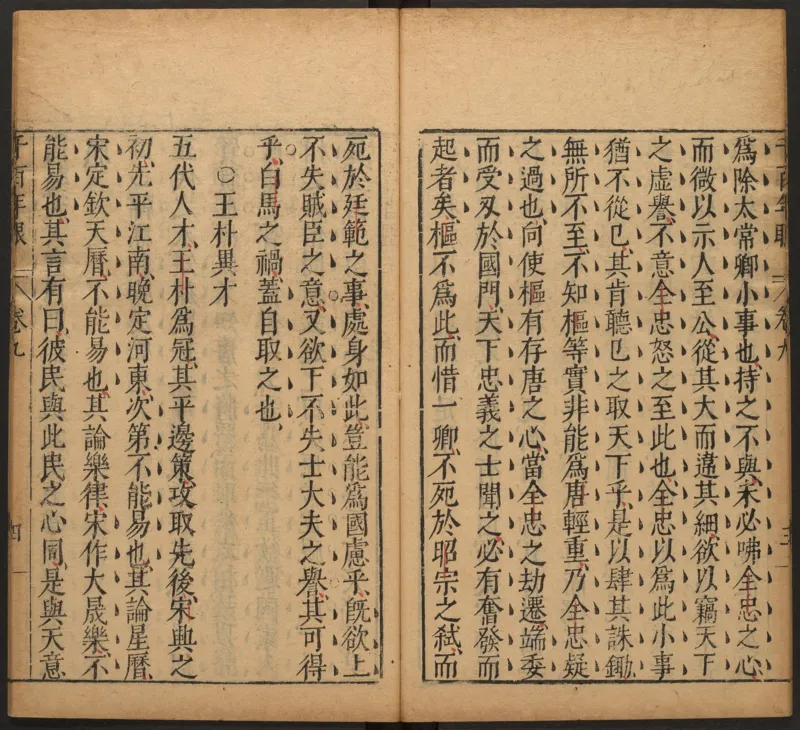 爲除太常卿小事也持之不與未必咈全忠之心
而微以示人至公從其大而違其細欲以竊天下
之虛譽不意全忠怒之至此也全忠以爲此小事
猶不從巳其肯聽巳之取天下乎是以肆其誅鋤
無所不至不知樞等實非能爲唐輕重乃全忠疑
之過也向使樞有存唐之心當全忠之劫遷端委
而受刄於國門天下忠義之士聞之必有奮發而
起者矣樞不爲此而惜一卿不死於昭宗之弑而
死於廷範之事處身如此豈能爲國慮乎旣欲上
不失賊臣之意又欲下不失士大夫之譽其可得
乎白馬之禍蓋自取之也
○王朴異才
五代人才王朴爲冠其平邊策攻取先後宋興之
初先平江南晚定河東次第不能易也其論星曆
宋定欽天曆不能易也其論樂律宋作大晟樂不
能易也其言有曰彼民與此民之心同是與天意
卷九
四